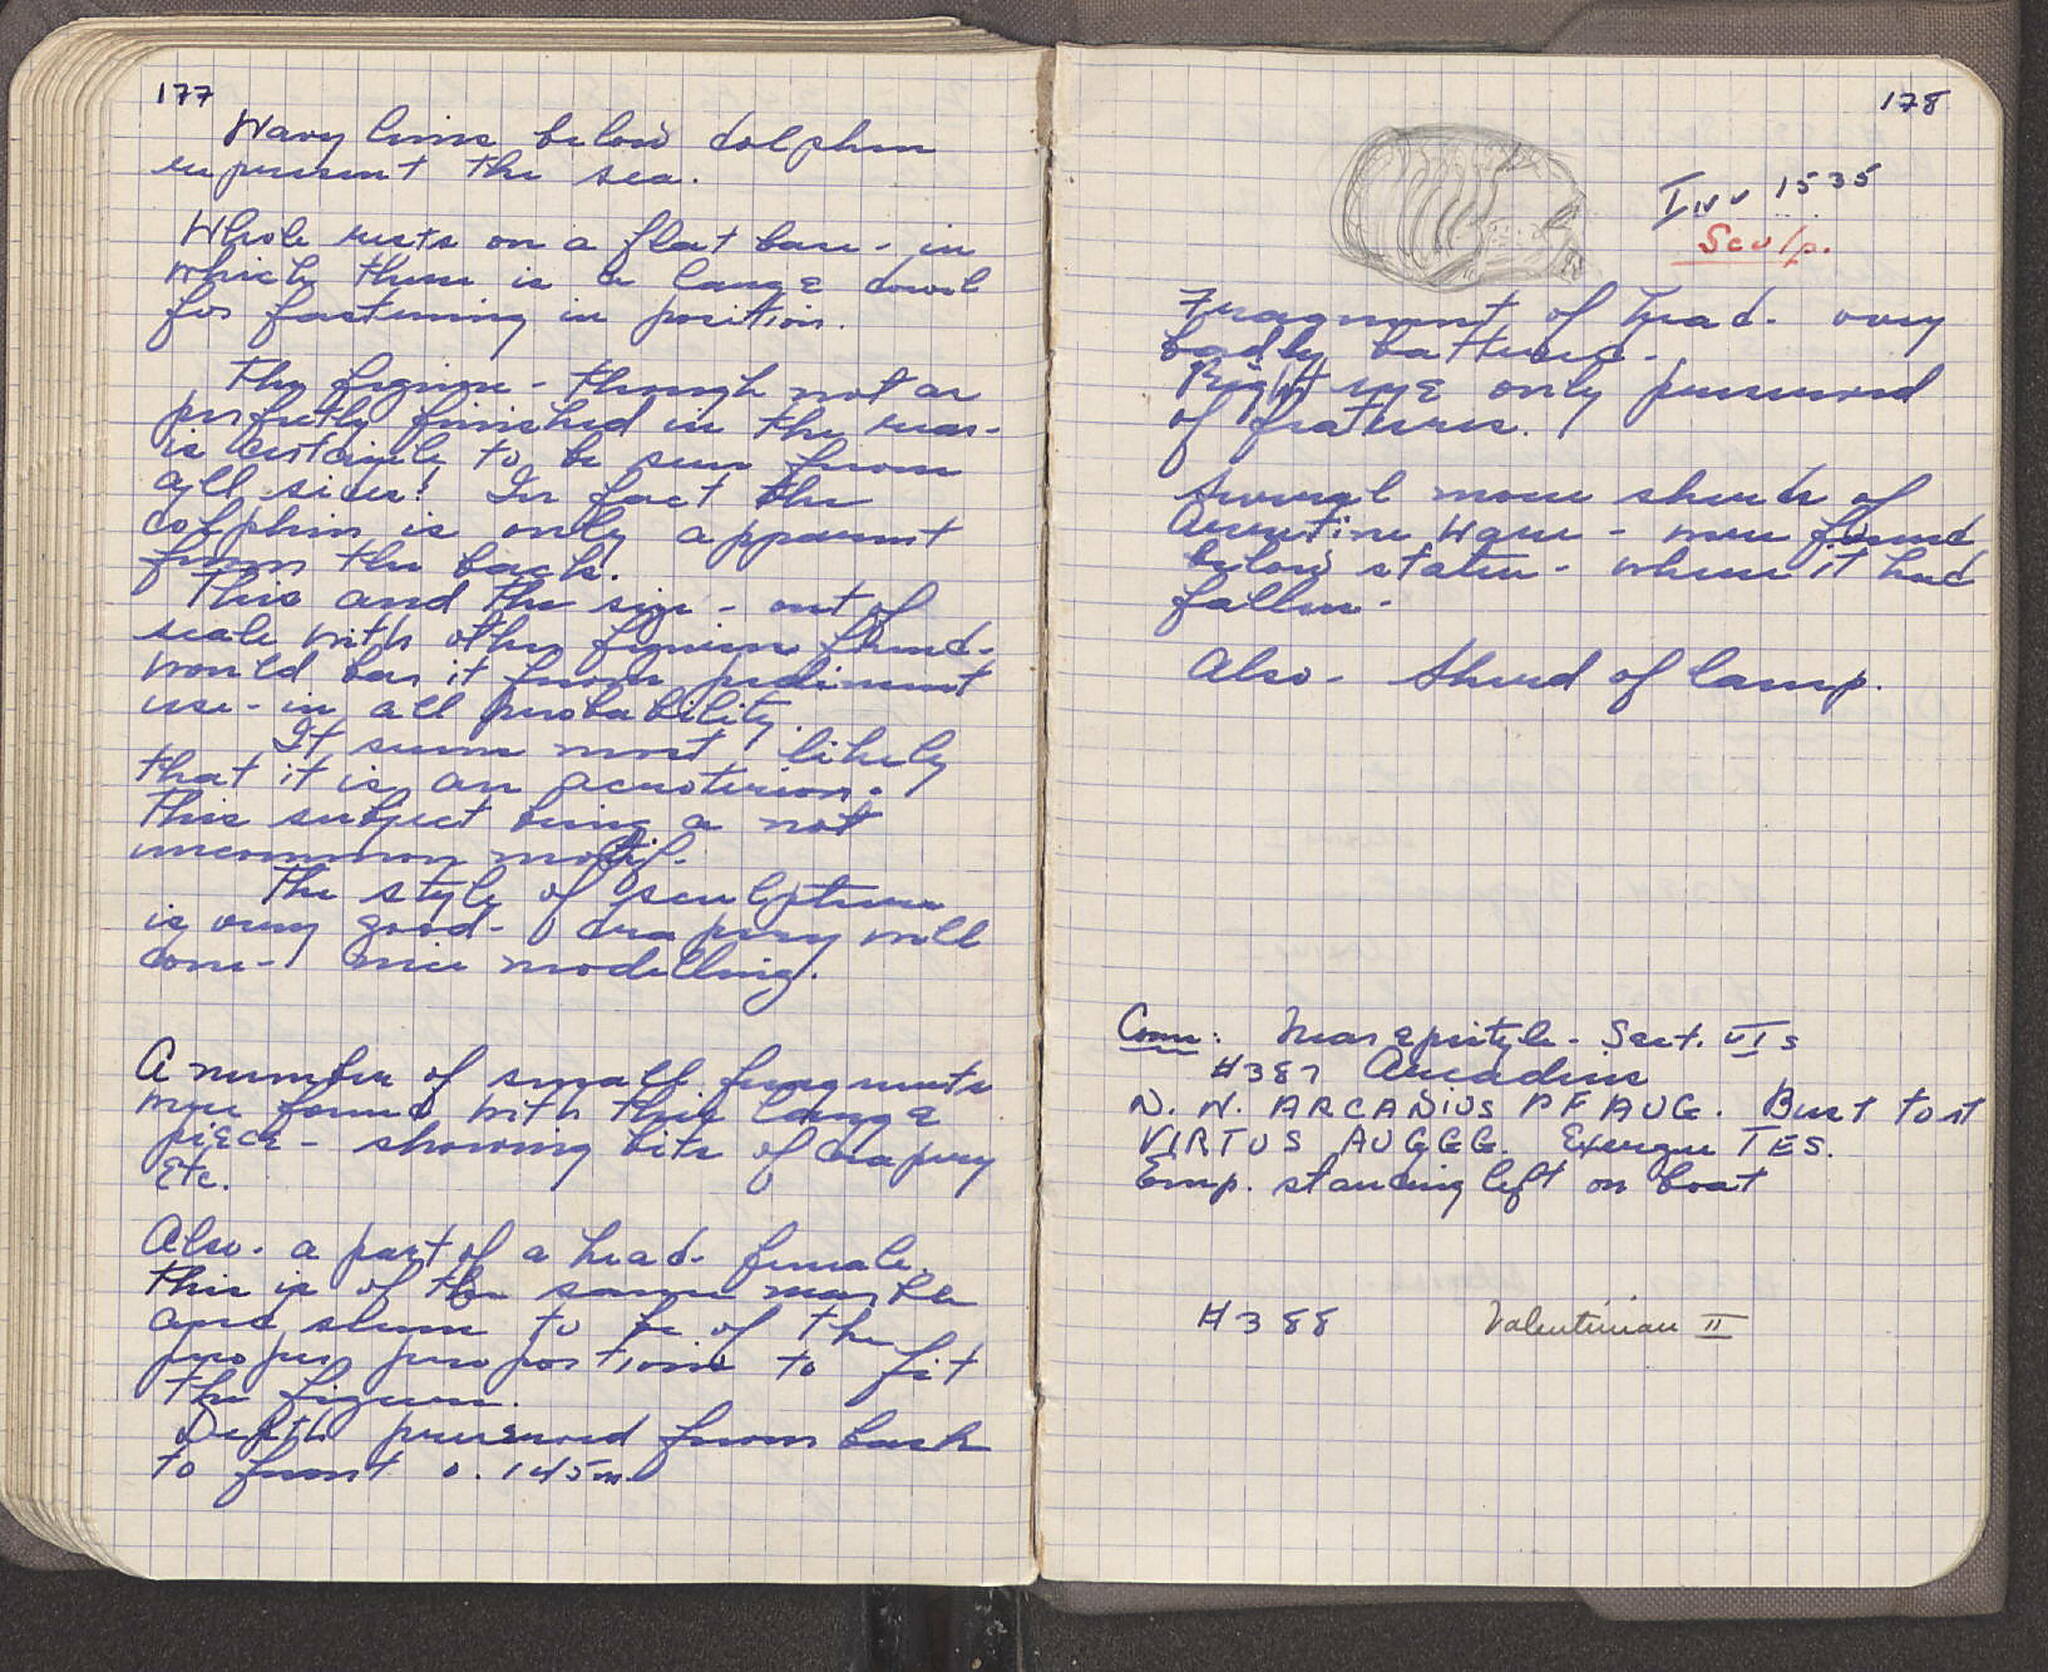 177
Wavy lines below dolphin
represent the sea.
Whole rests on a flat base - in
which there is a large dowel
for fastening in position.
The figure - though not as
perfectly finished in the rear -
is certainly to be seen from
all sides! In fact the
dolphin is only apparent
from the back.
This and the size - out of
scale with other figures found -
would bar it from pediment
use - in all probability.
It seems most likely
that it is an acroterion.
This subject being a not
uncommon motif.
The style of sculpture
is very good - drapery well
done - nice modelling.
A number of small fragments
were found with this large
piece - showing bits of drapery
etc.
Also - a part of a head - female.
This is of the same marble
and seems to be of the
proper proportions to fit
the figure.
Depth preserved from back
to front 0.145m
178
Inv 1535
Sculp.
Fragment of head - very
badly battered -
Right eye only preserved
of features.
Several more sherds of
Arretine Ware - were found
below statue - where it had
fallen -
Also - Sherd of lamp.
Coin: Near epistyle - Sect. VI s
#387 Arcadius
D. N. ARCADIUS P F AUG. Bust to rt
VIRTUS AUGGG. Exergue TES.
Emp. standing left on boat
#388 Valentinian II